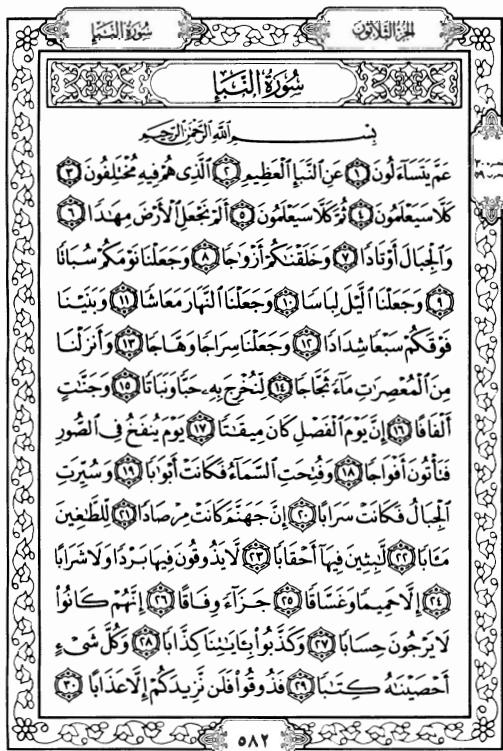 سُورَةُ النَّبَإِ
الجُزءُ الثَّلَاثُونَ
سُورَةُ النَّبَإِ
بِسْمِ اللَّهِ الرَّحْمَٰنِ الرَّحِيمِ
عَمَّ يَتَسَآءَلُونَ ١ عَنِ النَّبَإِ الْعَظِيمِ ٢ الَّذِى هُمْ فِيهِ مُخْتَلِفُونَ ٣
كَلَّا سَيَعْلَمُونَ ٤ ثُمَّ كَلَّا سَيَعْلَمُونَ ٥ أَلَمْ نَجْعَلِ الْأَرْضَ مِهَٰدًا ٦
وَالْجِبَالَ أَوْتَادًا ٧ وَخَلَقْنَٰكُمْ أَزْوَٰجًا ٨ وَجَعَلْنَا نَوْمَكُمْ سُبَاتًا
٩ وَجَعَلْنَا الَّيْلَ لِبَاسًا ١٠ وَجَعَلْنَا النَّهَارَ مَعَاشًا ١١ وَبَنَيْنَا
فَوْقَكُمْ سَبْعًا شِدَادًا ١٢ وَجَعَلْنَا سِرَاجًا وَهَّاجًا ١٣ وَأَنزَلْنَا
مِنَ الْمُعْصِرَٰتِ مَآءً ثَجَّاجًا ١٤ لِّنُخْرِجَ بِهِۦ حَبًّا وَنَبَاتًا ١٥ وَجَنَّٰتٍ
أَلْفَافًا ١٦ إِنَّ يَوْمَ الْفَصْلِ كَانَ مِيقَٰتًا ١٧ يَوْمَ يُنفَخُ فِى الصُّورِ
فَتَأْتُونَ أَفْوَاجًا ١٨ وَفُتِحَتِ السَّمَآءُ فَكَانَتْ أَبْوَٰبًا ١٩ وَسُيِّرَتِ
الْجِبَالُ فَكَانَتْ سَرَابًا ٢٠ إِنَّ جَهَنَّمَ كَانَتْ مِرْصَادًا ٢١ لِّلطَّٰغِينَ
مَـَٔابًا ٢٢ لَّٰبِثِينَ فِيهَآ أَحْقَابًا ٢٣ لَّا يَذُوقُونَ فِيهَا بَرْدًا وَلَا شَرَابًا
٢٤ إِلَّا حَمِيمًا وَغَسَّاقًا ٢٥ جَزَآءً وِفَاقًا ٢٦ إِنَّهُمْ كَانُوا۟
لَا يَرْجُونَ حِسَابًا ٢٧ وَكَذَّبُوا۟ بِـَٔايَٰتِنَا كِذَّابًا ٢٨ وَكُلَّ شَىْءٍ
أَحْصَيْنَٰهُ كِتَٰبًا ٢٩ فَذُوقُوا۟ فَلَن نَّزِيدَكُمْ إِلَّا عَذَابًا ٣٠
٥٨٢